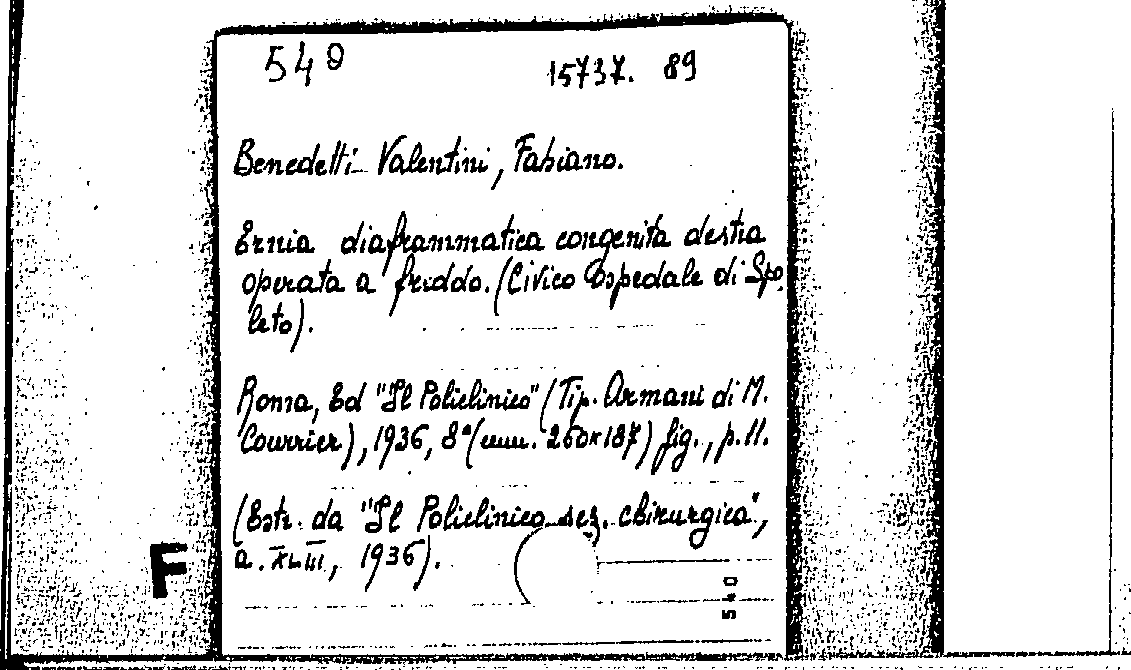 549 15737. 89
Benedetti-Valentini, Fabiano.
Ernia diaframmatica congenita destra
operata a freddo. (Civico Ospedale di Spo
leto).
Roma, Ed "Il Policlinico" (Tip. Armani di M.
Courrier), 1936, 8° (mm. 260x187) fig., p. 11.
(Estr. da "Il Policlinico sez. chirurgica",
a. XLIII, 1936).
F
540